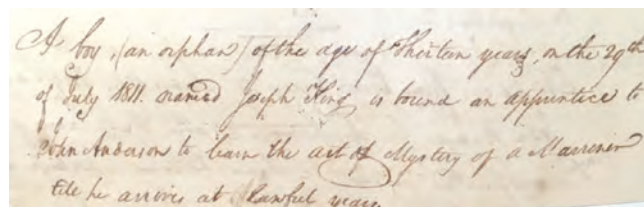 A boy, (an orphan) of the age of Thirteen years, on the 29th
of July 1811. named Joseph King, is bound an apprentice to
John Anderson to learn the art of Mystery of a Marriner
till he arrives at Lawful years.